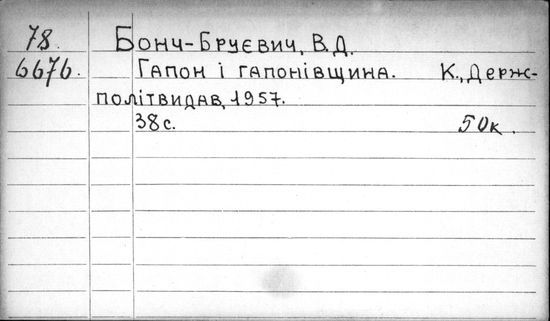 78. Бонч-Бруєвич, В.Д.
6676. Гапон і гапонівщина. К., Держ-
політвидав, 1957.
38 с. 50к.